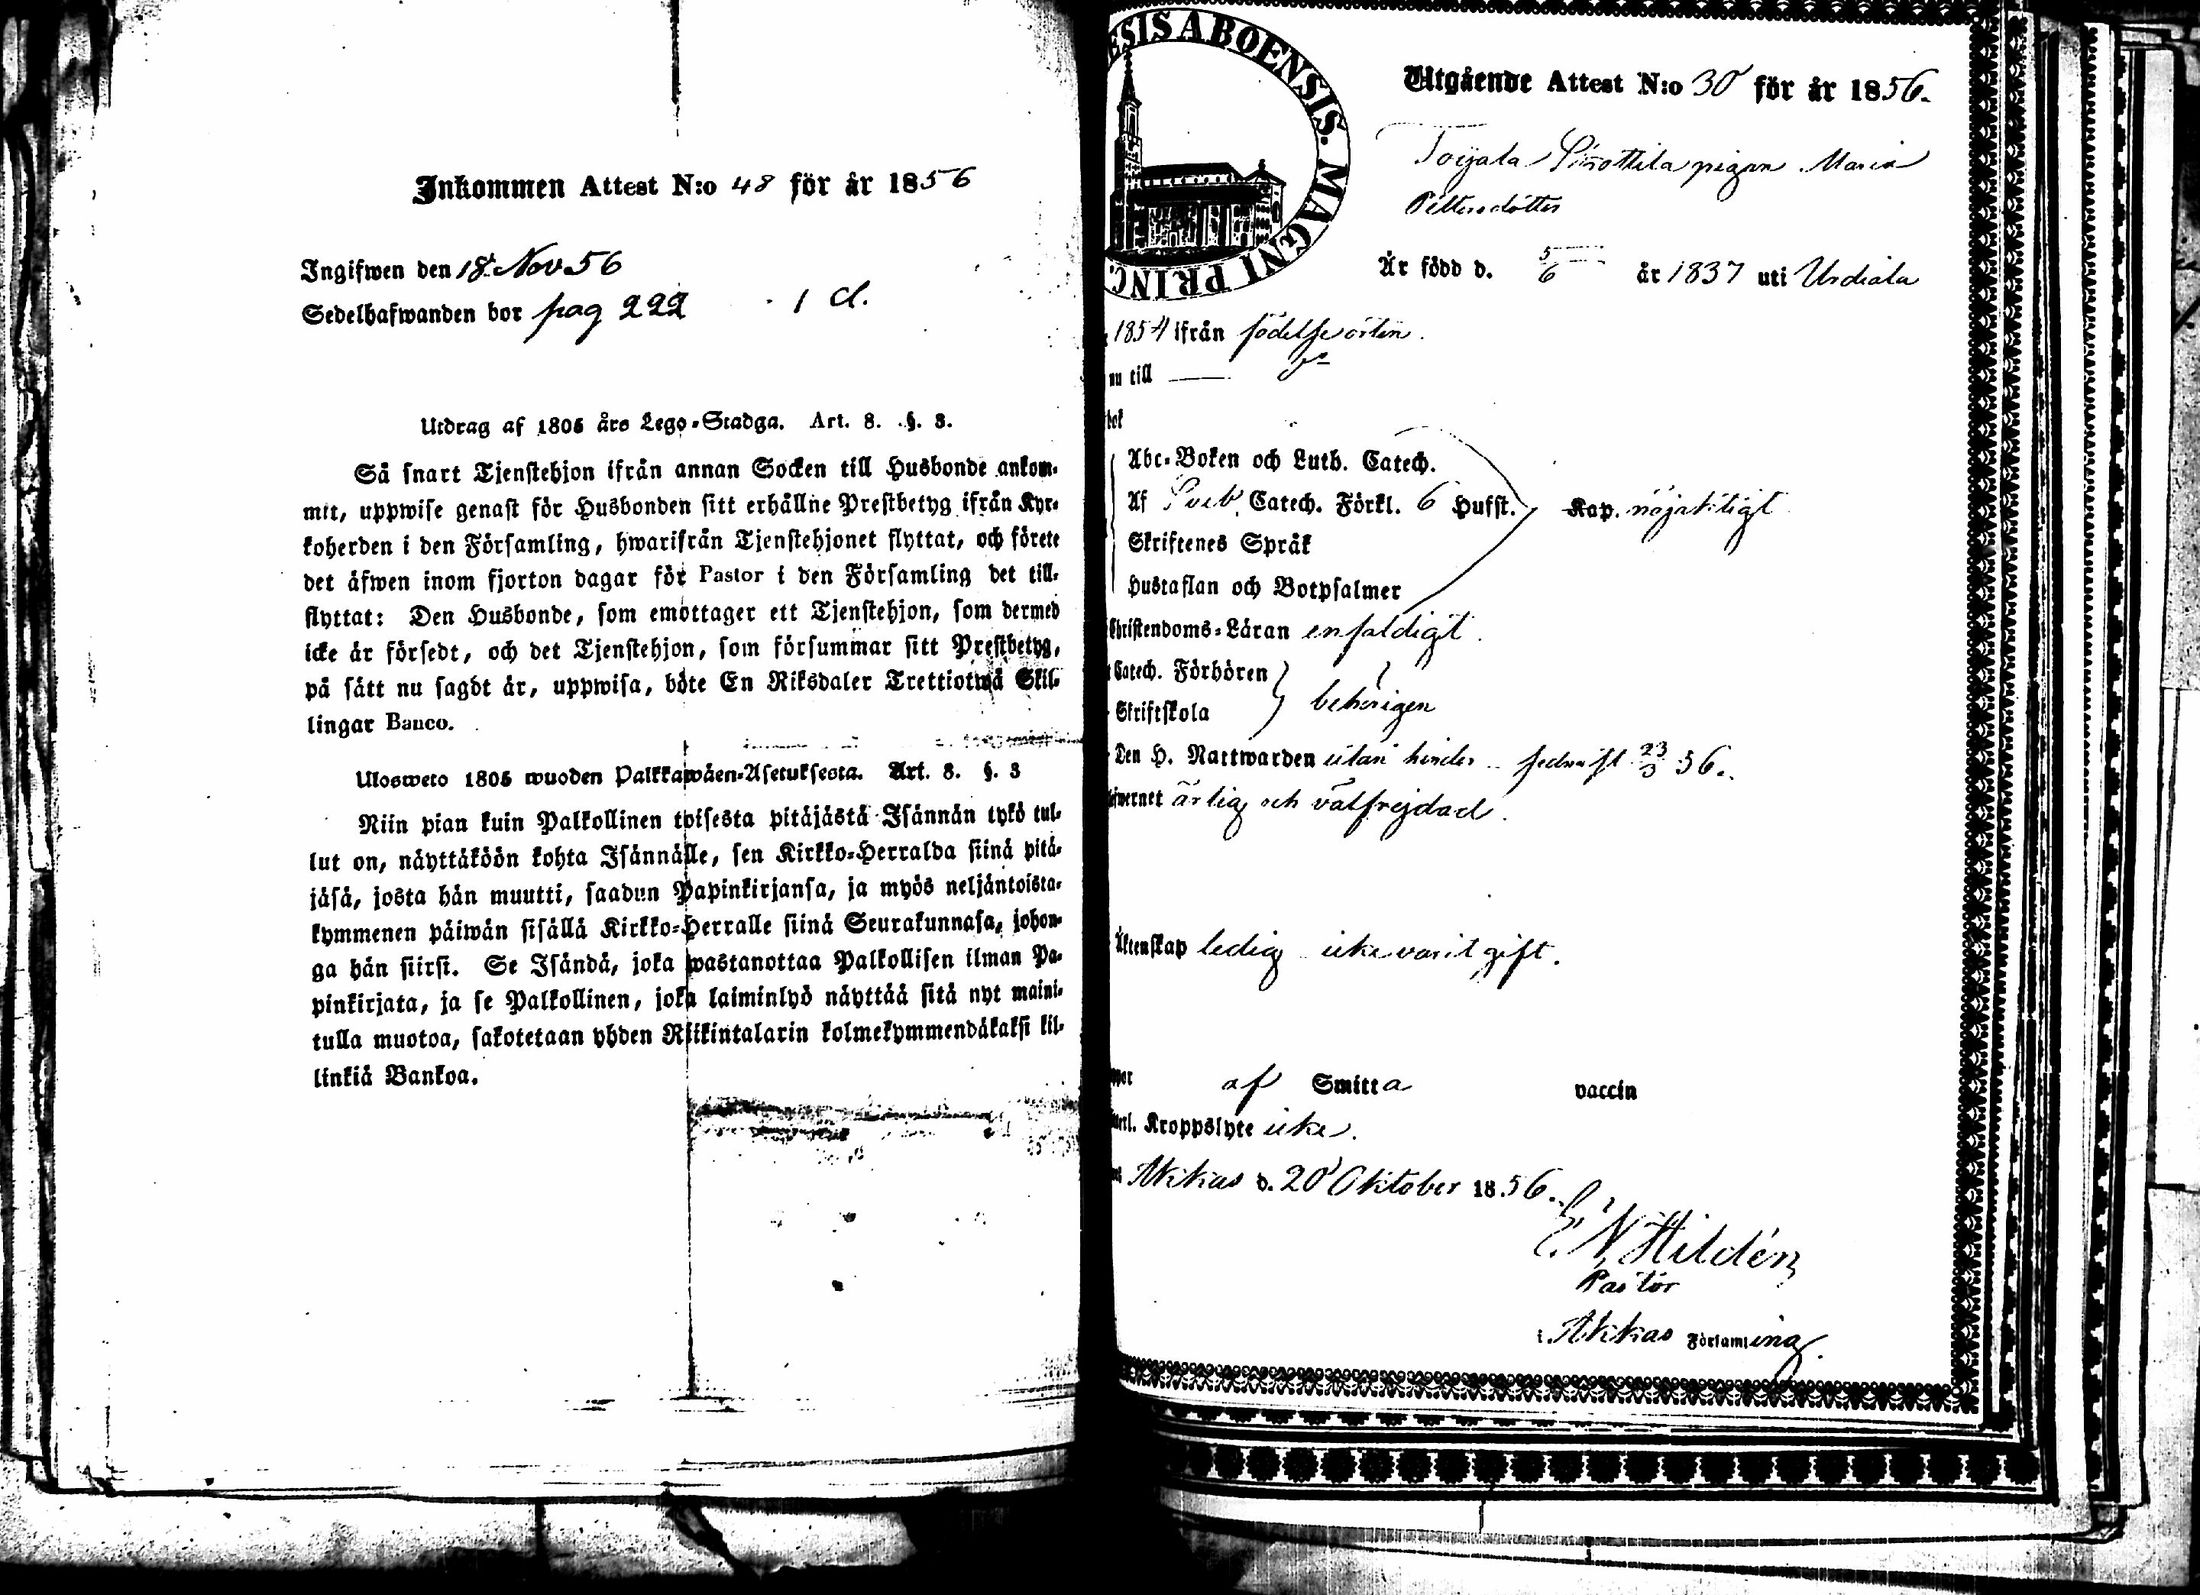 Inkommen Attest N:o 48 för år 1856
Ingifwen den 18 Nov 56
Sedelhafwanden bor pag 222 1 d.
Utdrag af 1805 års Lego-Stadga. Art. 8. §. 3.
Så snart Tjenstehjon ifrån annan Socken till Husbonde ankom-
mit, uppwise genast för Husbonden sitt erhållne Prestbetyg ifrån Kyr-
koherden i den Församling, hwarifrån Tjenstehjonet flyttat, och förete
det äfwen inom fjorton dagar för Pastor i den Församling det till-
flyttat: Den Husbonde, som emottager ett Tjenstehjon, som dermed
icke är försedt, och det Tjenstehjon, som försummar sitt Prestbetyg,
på sätt nu sagdt är, uppwisa, böte En Riksdaler Trettiotwå Skil-
lingar Banco.
Ulosweto 1805 wuoden Palkkawäen-Asetuksesta. Art. 8. §. 3
Niin pian kuin Palkollinen toisesta pitäjästä Isännän tykö tul-
lut on, näyttäköön kohta Isännälle, sen Kirkko-Herralda siinä pitä-
jäsä, josta hän muutti, saadun Papinkirjansa, ja myös neljäntoista-
kymmenen päiwän sisällä Kirkko-Herralle siinä Seurakunnasa, johon-
ga hän siirsi. Se Isändä, joka wastanottaa Palkollisen ilman Pa-
pinkirjata, ja se Palkollinen, joka laiminlyö näyttää sitä nyt maini-
tulla muotoa, sakotetaan yhden Riikintalarin kolmekymmendäkaksi kil-
linkiä Bankoa.
ESIS ABOENSIS. MAGNI PRINC.
Utgående Attest N:o 30 för år 1856.
Toijala pigan Maria
Pettersdotter
Är född d. 5/6 år 1837 uti Urdiala
1854 ifrån födelseorten.
nu till —
bok
Abc-Boken och Luth. Catech.
Af Sveb. Catech. Förkl. 6 Hufst. Kap. nöjaktigt
Skriftenes Språk
Hustaflan och Botpsalmer
Christendoms-Läran enfaldigt.
Catech. Förhören
Skriftskola behörigen
Den H. Nattwarden utan hinder sednast 23/3 56.
lefwernet ärlig och välfrejdad.
Äktenskap ledig icke varit gift.
af Smitta vaccin
Kroppslyte icke.
Akkas d. 20 Oktober 1856.
E. N. Hildén
Pastor
i Akkas Församling.